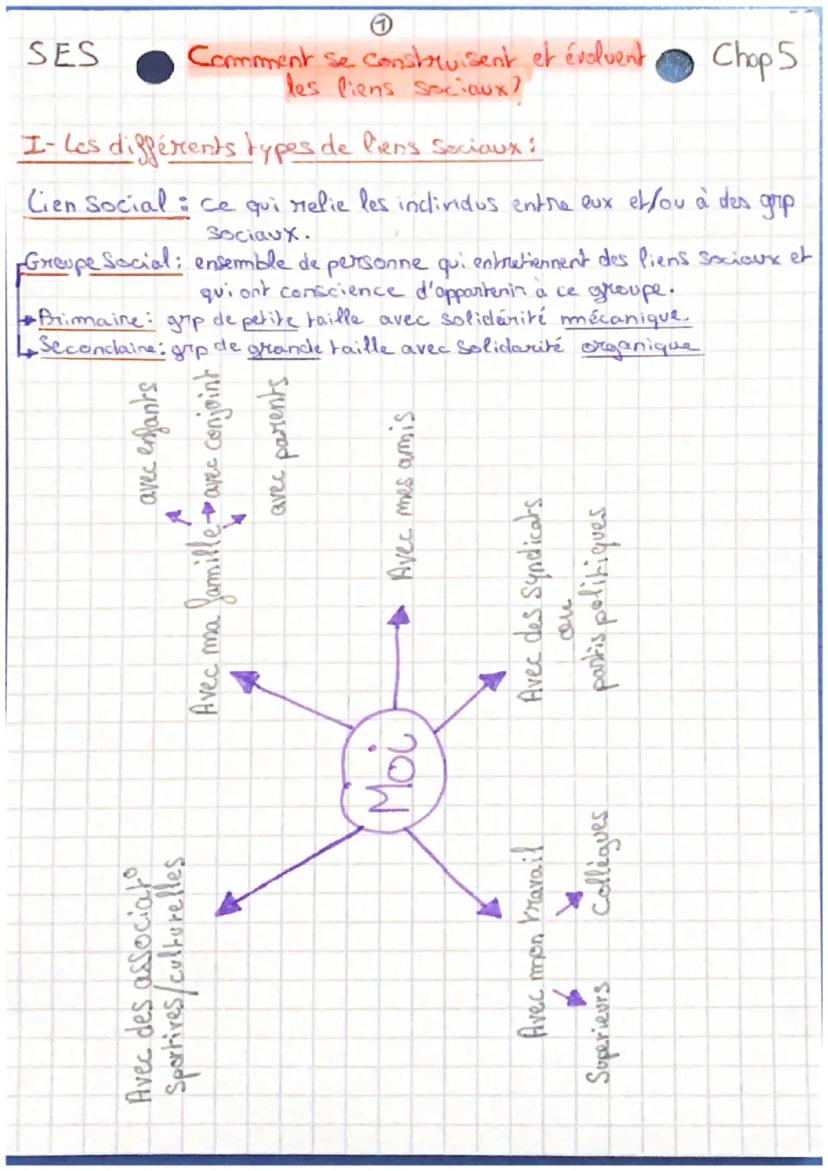 1
SES
Comment se construisent et évoluent
les liens sociaux?
Chap 5
I- Les différents types de liens sociaux :
Lien social : ce qui relie les individus entre eux et/ou à des grp
sociaux.
Groupe Social : ensemble de personne qui entretiennent des liens sociaux et
qui ont conscience d'appartenir à ce groupe.
Primaire : grp de petite taille avec solidérité mécanique.
Secondaire : grp de grande taille avec solidarité organique
avec enfants
avec conjoint
avec parents
Avec ma famille
Avec mes amis
Avec des syndicats
ou
partis politiques
Moi
Avec des associat°
Sportives/culturelles
Avec mon travail
Collègues
Superieurs